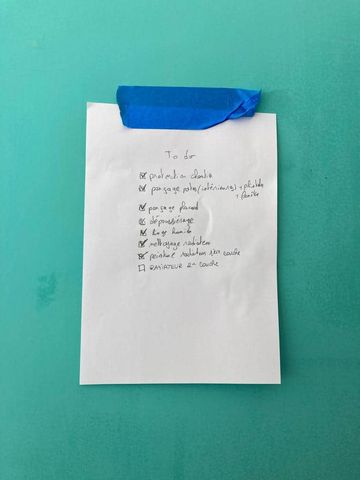 To do
protection
ponçage (intérieures) +
+
ponçage placard
dépoussiérage
linge humide
nettoyage radiateur
peinture radiateur 1ère couche
RADIATEUR 2e couche